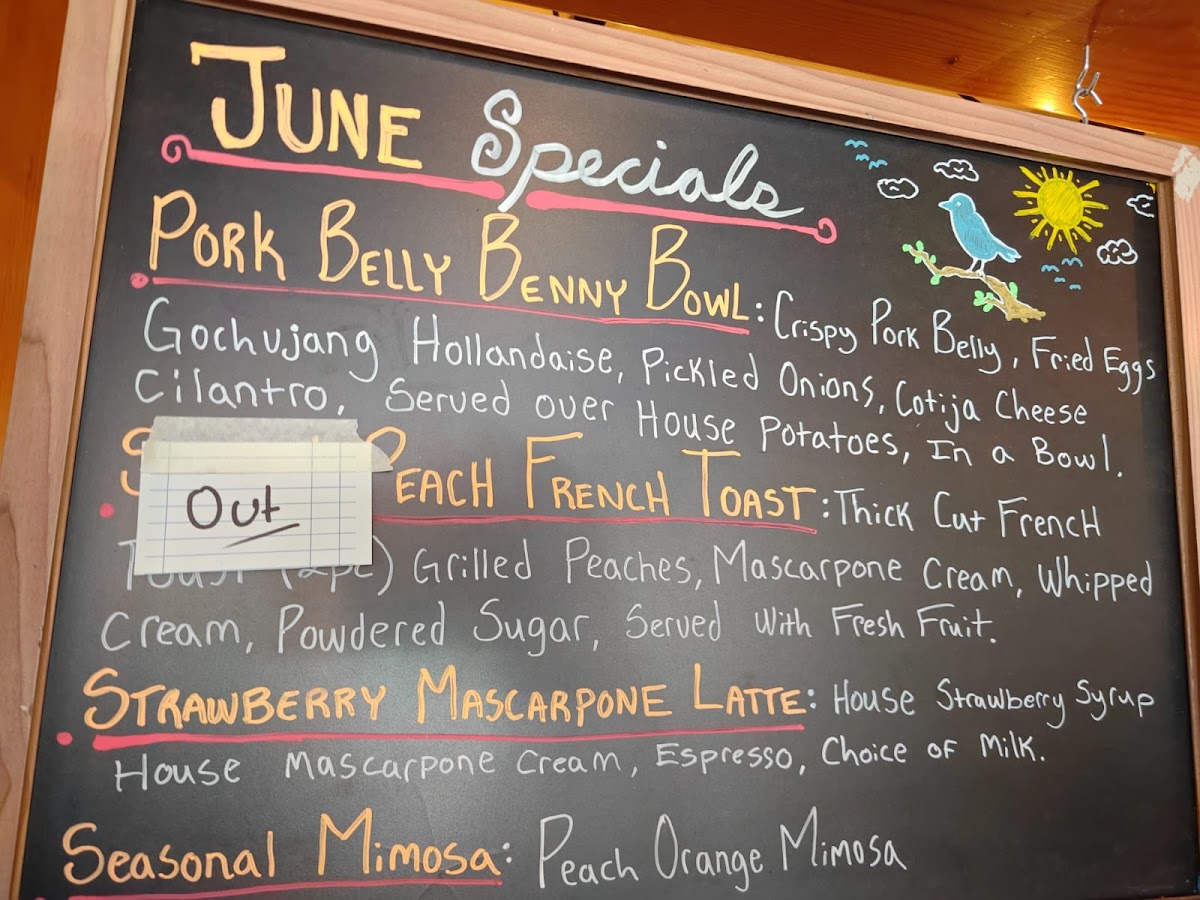 JUNE Specials
PORK BELLY BENNY BOWL: Crispy Pork Belly, Fried Eggs
Gochujang Hollandaise, Pickled Onions, Cotija Cheese
Cilantro, Served over House Potatoes, In a Bowl.
PEACH FRENCH TOAST: Thick Cut French
Out
Toast (2pc) Grilled Peaches, Mascarpone Cream, Whipped
Cream, Powdered Sugar, Served With Fresh Fruit.
STRAWBERRY MASCARPONE LATTE: House Strawberry Syrup
House Mascarpone Cream, Espresso, Choice of Milk.
Seasonal Mimosa: Peach Orange Mimosa